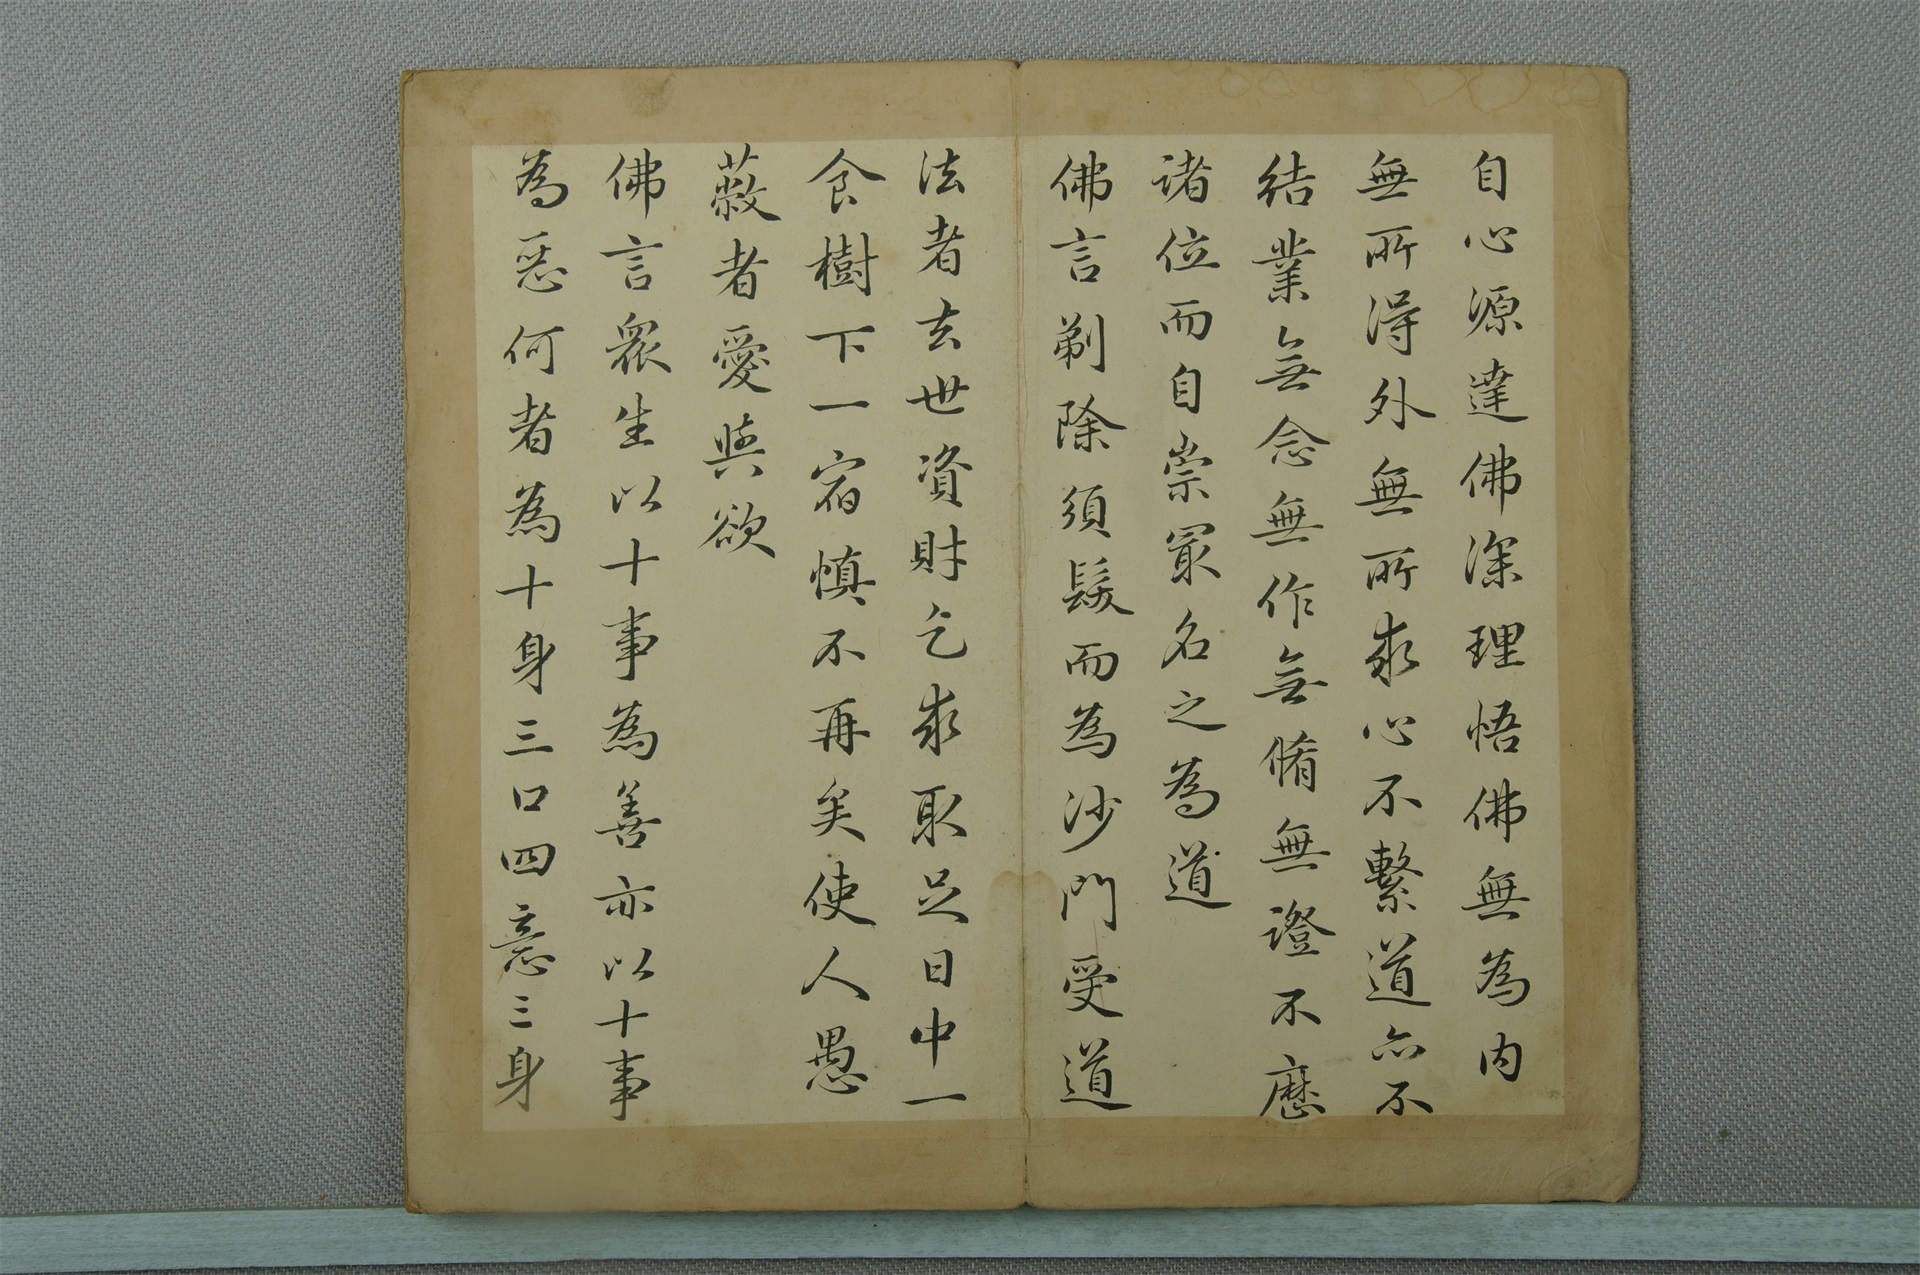 自心源達佛深理悟佛無為內
無所得外無所求心不繫道亦不
結業無念無作無脩無證不歷
諸位而自崇最名之為道
佛言剃除須髮而為沙門受道
法者去世資財乞求取足日中一
食樹下一宿慎不再矣使人愚
蔽者愛與欲
佛言眾生以十事為善亦以十事
為惡何者為十身三口四意三身